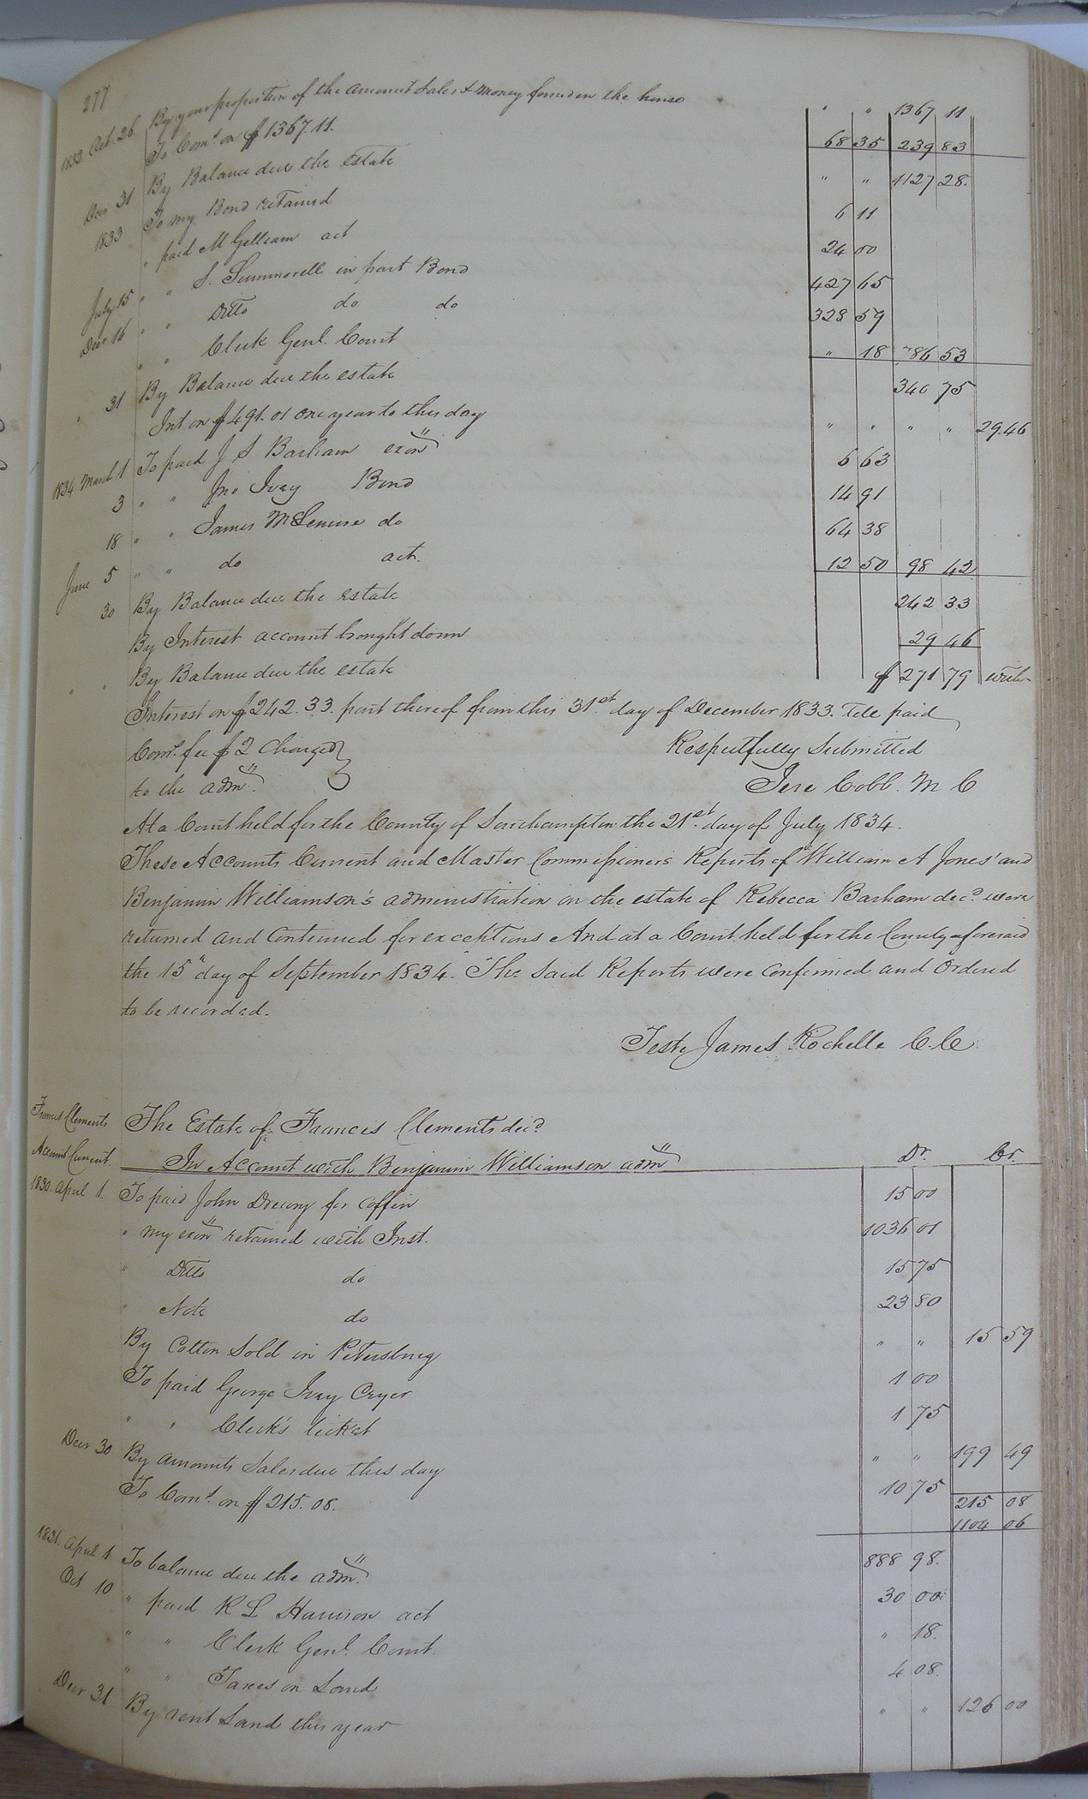 277
1832 Oct. 26. By your proportion of the amount Sales & money found in the house " " 1367 11
To Coms. on $1367.11. 68 35 239 83
Decr 31 By Balance due the estate " " 1127 28.
1833 To my Bond retained 6 11
" paid M Gilliam act 24 00
July 15 " " S. Summerell in part Bond 427 65
Decr 16 " " Ditto do do 328 59
" " Clerk Genl. Court " 18 786 53
" 31 By Balance due the estate 340 75
Int on $491.01 one year to this day " " " " 29.46
1834 March 1 To paid J S Barham exon 6 63
3 " " Jno Ivey Bond 14 91
18 " " James McLemore do 64 38
June 5 " " do act. 12 50 98 42
30 By Balance due the estate 242 33
By Interest account brought down 29 46
" " By Balance due the estate $ 271 79 with
Interest on $242.33. part thereof from this 31st. day of December 1833. Till paid
Comr. fee $2 Charged Respectfully Submitted
to the admr. Jere Cobb. M C
At a Court held for the County of Southampton the 21st. day of July 1834.
These Accounts Current and Master Commissioners Reports of William A Jones' and
Benjamin Williamson's administration on the estate of Rebecca Barham decd were
returned and Continued for exceptions And at a Court held for the County aforesaid
the 15" day of September 1834. The Said Reports were Confirmed and Ordered
to be recorded.
Teste James Rochelle C.C
Francis Clements The Estate of Francis Clements decd
Account Current In Account with Benjamin Williamson admr Dr. Cr.
1830. April 1. To paid John Drewry for coffin 15 00
" my exon retained with Inst. 1036 01
" Ditto do 15 75
" Note do 23 80
By Cotton Sold in Petersburg " " 15 59
To paid George Ivey Cryer 1 00
" " Clerk's ticket 1 75
Decr 30 By amounts Sales due this day " " 199 49
To Coms. on $215.08. 10 75 215 08
1104 06
1831. April 1 To balance due the admr. 888 98.
Oct 10 " paid R L Harrison act 30 00.
" " Clerk Genl. Court. " 18.
" " Taxes on Land 4 08.
Decr 31 By rent Land this year " " 126 00